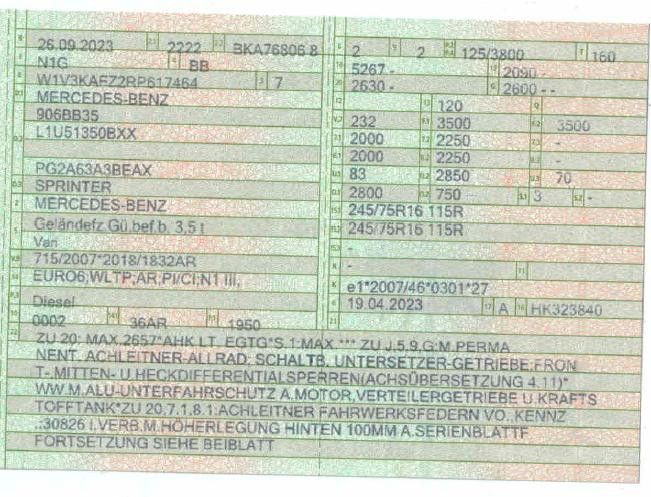 26.09.2023 2222 BKA76806 8
N1G BB
W1V3KAFZ2RP617464 7
MERCEDES-BENZ
906BB35
L1U51350BXX
PG2A63A3BEAX
SPRINTER
MERCEDES-BENZ
Geländefz.Gü.bef.b. 3,5 t
Van
715/2007*2018/1832AR
EURO6;WLTP;AR;PI/CI;N1 III,
Diesel
0002 36AR 1950
2 2 125/3800 160
5267 - 2090 -
2630 - 2600 - -
120
232 3500 3500
2000 2250 -
2000 2250 -
83 2850 70
2800 750 3 -
245/75R16 115R
245/75R16 115R
-
-
e1*2007/46*0301*27
19.04.2023 A HK323840
ZU 20: MAX.2657*AHK LT. EGTG*S.1:MAX.*** ZU J,5,9,G:M.PERMA
NENT. ACHLEITNER-ALLRAD, SCHALTB. UNTERSETZER-GETRIEBE,FRON
T-,MITTEN- U.HECKDIFFERENTIALSPERREN(ACHSÜBERSETZUNG 4.11)*
WW.M.ALU-UNTERFAHRSCHUTZ A.MOTOR,VERTEILERGETRIEBE U.KRAFTS
TOFFTANK*ZU 20,7.1,8.1:ACHLEITNER FAHRWERKSFEDERN VO.,KENNZ
.:30826 I.VERB.M.HÖHERLEGUNG HINTEN 100MM A.SERIENBLATTF
FORTSETZUNG SIEHE BEIBLATT